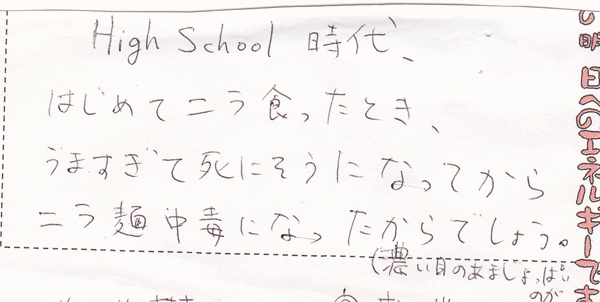 High School 時代、
はじめてニラ食ったとき、
うますぎて死にそうになってから
ニラ麺中毒になったからでしょう。
(濃い目のあましょっぱい
のが
明日へのエネルギーです